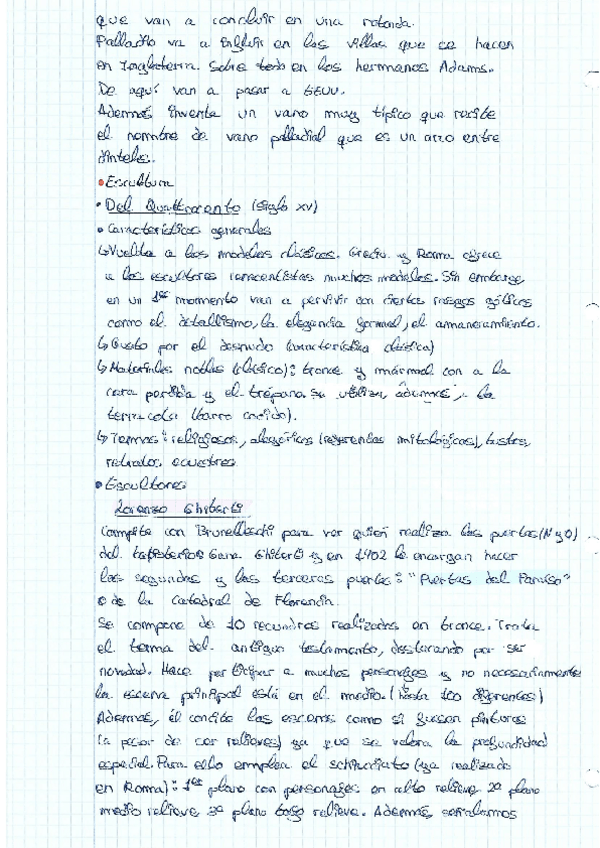 que van a concluir en una rotonda.
Palladio va a influir en las villas que se hacen
en Inglaterra. Sobre todo en los hermanos Adams.
De aquí van a pasar a EEUU.
Además inventa un vano muy típico que recibe
el nombre de vano palladial que es un arco entre
dinteles.
• Escultura
• Del Quattrocento (siglo XV)
• Características generales
↳ Vuelta a los modelos clásicos. Grecia y Roma ofrece
a los escultores renacentistas muchos modelos. Sin embargo
en un 1er momento van a pervivir con ciertos rasgos góticos
como el detallismo, la elegancia formal, el amaneramiento.
↳ Gusto por el desnudo (característica clásica)
↳ Materiales nobles (clásico): bronce y mármol con a la
cera perdida y el trépano. Se utiliza, además, la
terracota (barro cocido).
↳ Temas: religiosos, alegóricos (referencias mitológicas), bustos,
retratos ecuestres
• Escultores
Lorenzo Ghiberti
Compite con Brunelleschi para ver quién realiza las puertas (N y O)
del baptisterio. Gana Ghiberti y en 1402 le encargan hacer
las segundas y las terceras puertas: "Puertas del Paraíso"
de la Catedral de Florencia.
Se compone de 10 recuadros realizados en bronce. Trata
el tema del antiguo testamento, destacando por ser
novedad. Hace participar a muchos personajes y no necesariamente
la escena principal está en el medio. (hasta 100 diferentes)
Además, él concibe las escenas como si fuesen pinturas
(a pesar de ser relieves) ya que se valora la profundidad
espacial. Para ello emplea el schiacciato (ya realizado
en Roma): 1er plano con personajes en alto relieve 2º plano
medio relieve 3º plano bajo relieve. Además señalamos